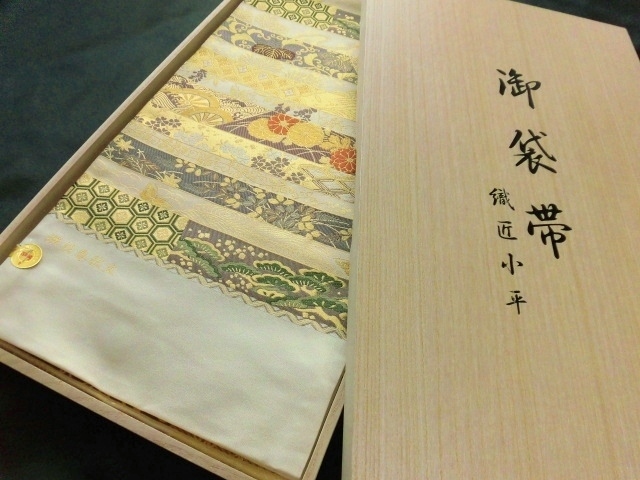 御袋帯
織匠小平